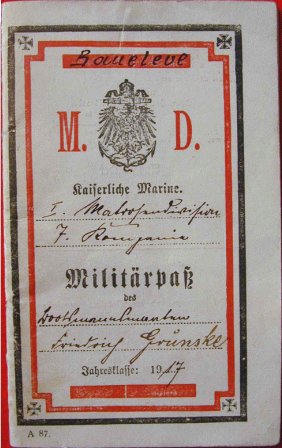 Baueleve
M. D.
Kaiserliche Marine.
I. Matrosendivision
7. Kompanie
Militärpaß
des
Bootsmannsmaaten
Friedrich Grünske
Jahresklasse: 1917
A 87.